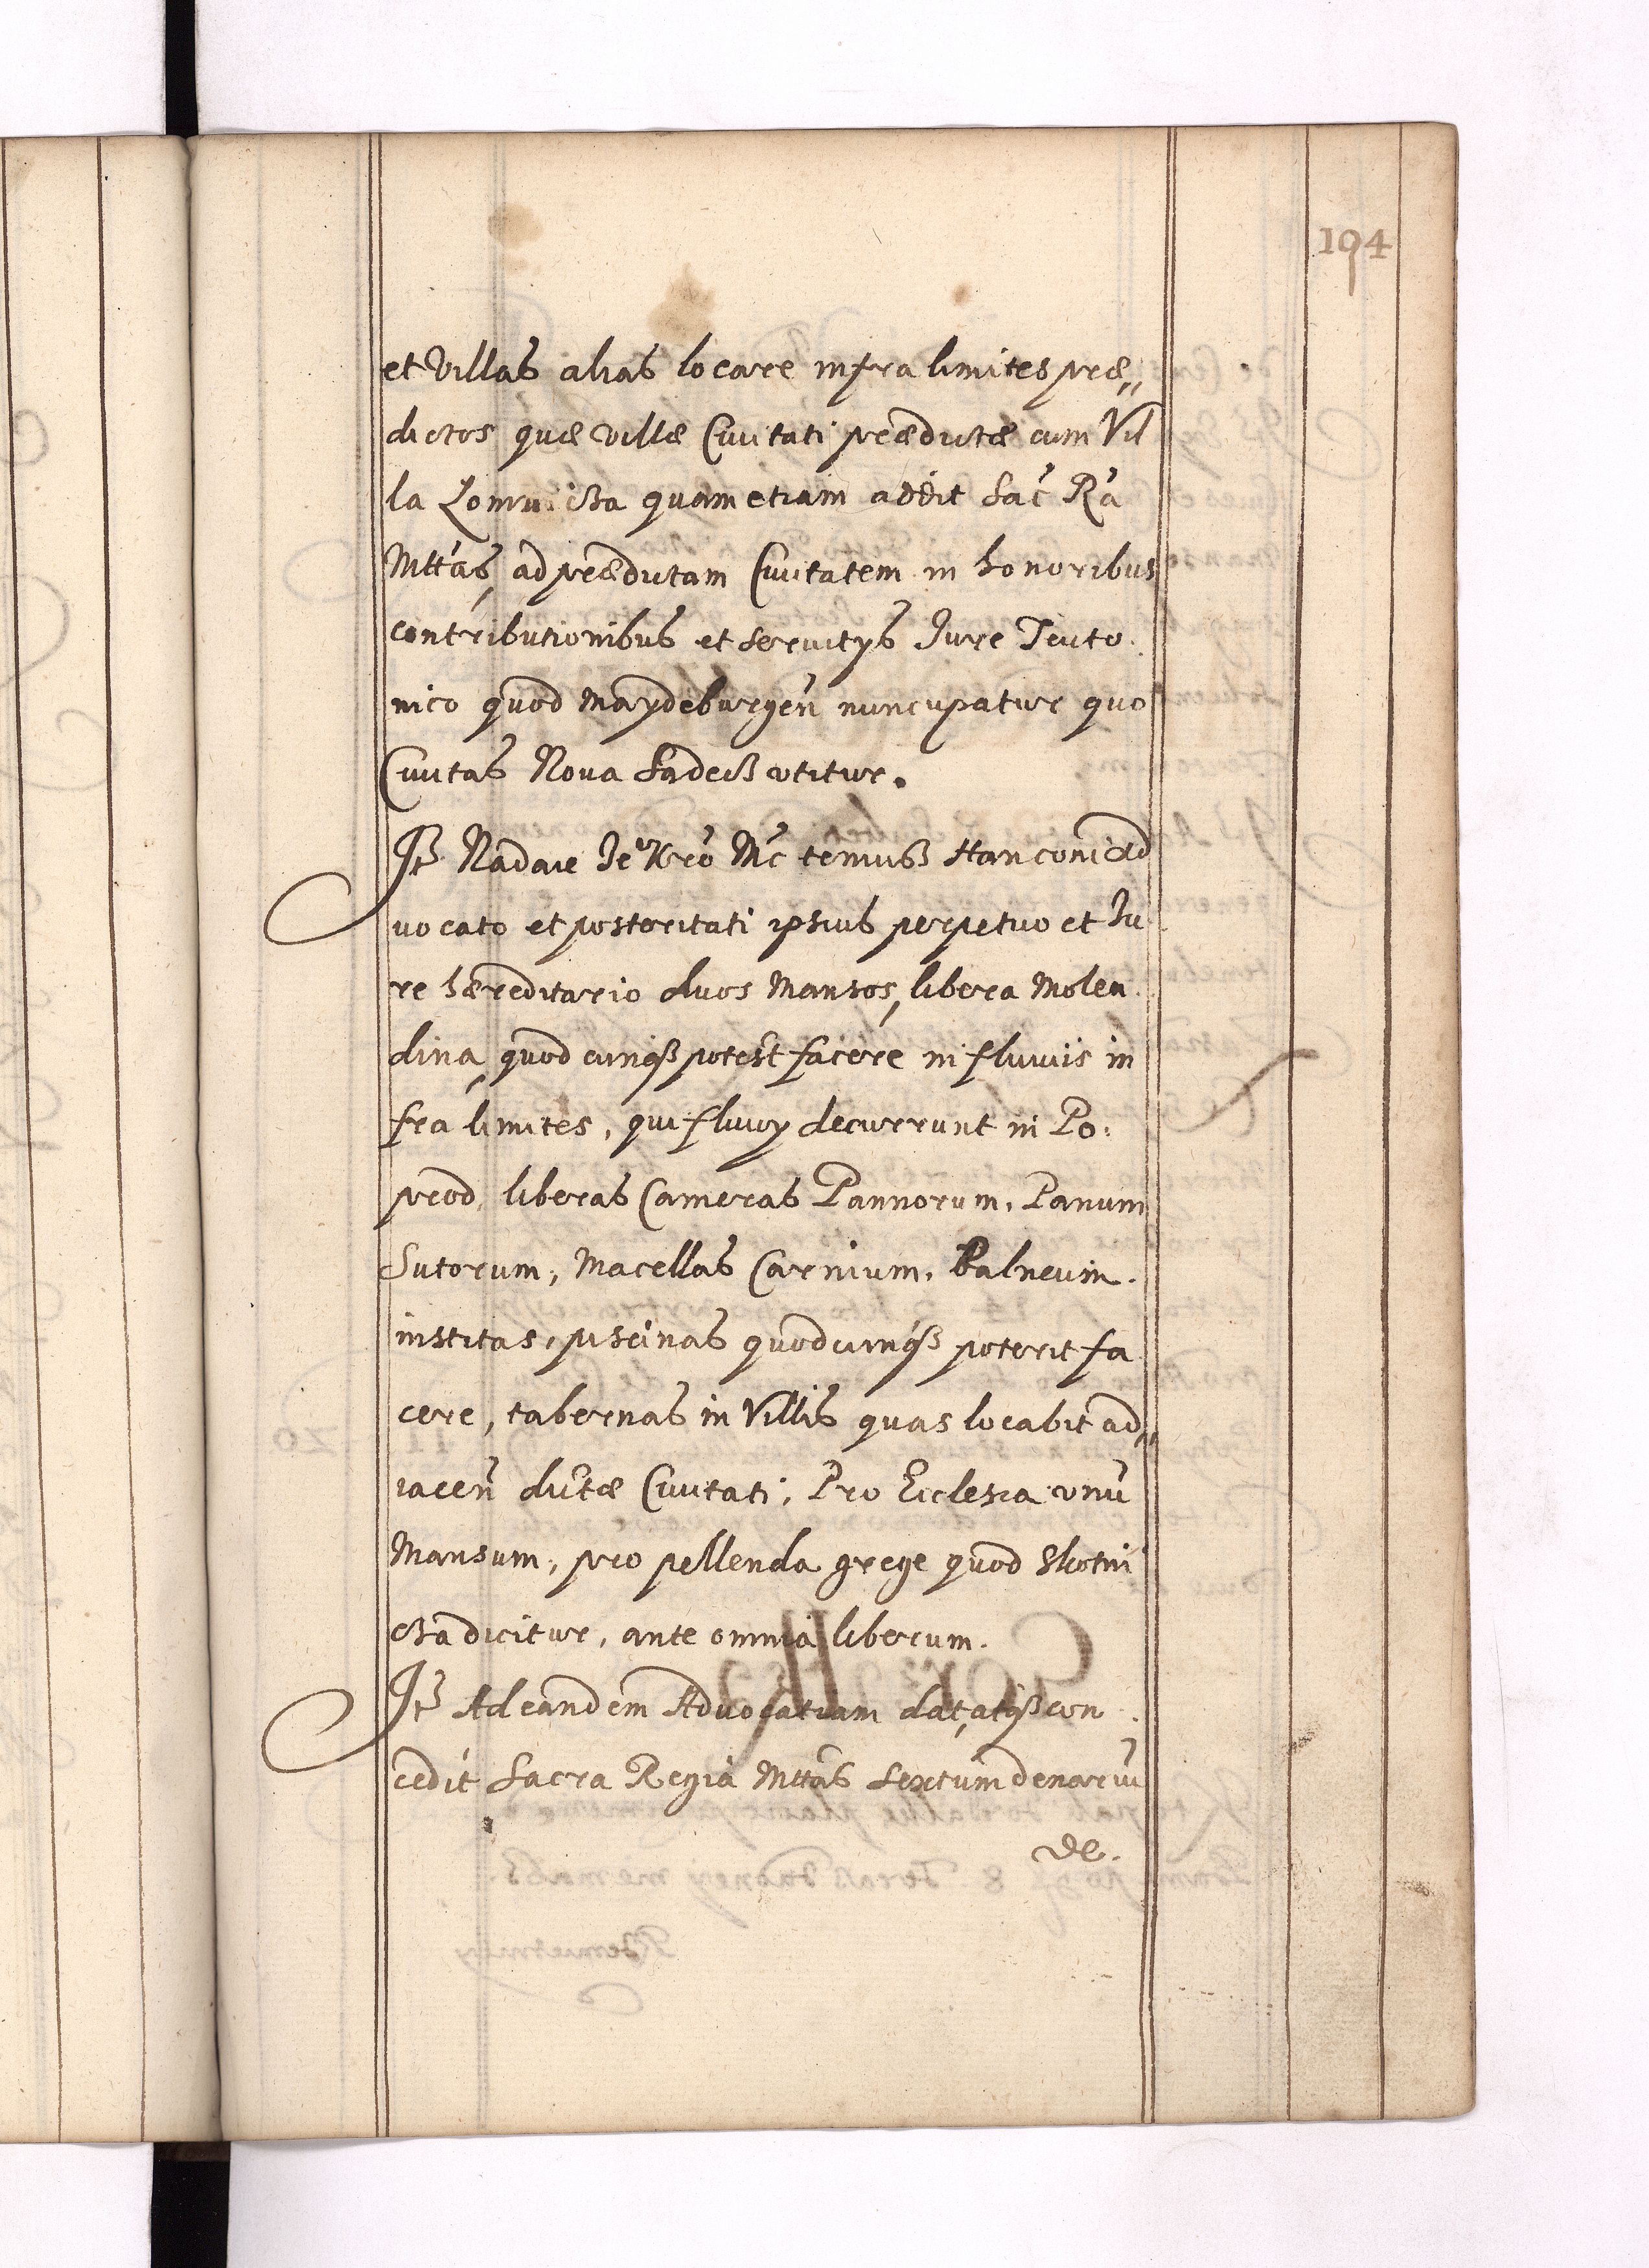 194
et Villas alias locare infra limites præ„
dictos quæ villæ Ciuitati prædictæ cum Vil
la Łomnicza quam etiam addit Sac̃ Rá
Mttás, ad prædictam Ciuitatem in honoribus
contributionibus et seruitys Jure Teuto
nico quod Maydeburgen̄ nuncupatur quo
Ciuitas Noua Sadecz vtitur.
Jt Nadaie Je° Kró Mć temusz Hanconi Ad
uocato et posteritati ipsius perpetuo et Ju
re hæreditario duos Mansos, libera Molen
dina, quodcunqꝫ potest facere in fluuiis in
fra limites, qui fluuy decurrunt in Po:
prod, liberas Cameras Pannorum, Panum
Sutorum, Macellas Carnium, Balneum
institas, piscinas quodcunqꝫ poterit fa
cere, tabernas in Villis quas locabit ad„
iacen̄ dictæ Ciuitati, Pro Ecclesia vnū
Mansum, pro pellenda grege quod Skotni
cza dicitur, ante omnia liberum.
Jt Ad eandem Aduocatiam dat, atqꝫ con
cedit Sacra Regia Mttás Sextum denariū
de.